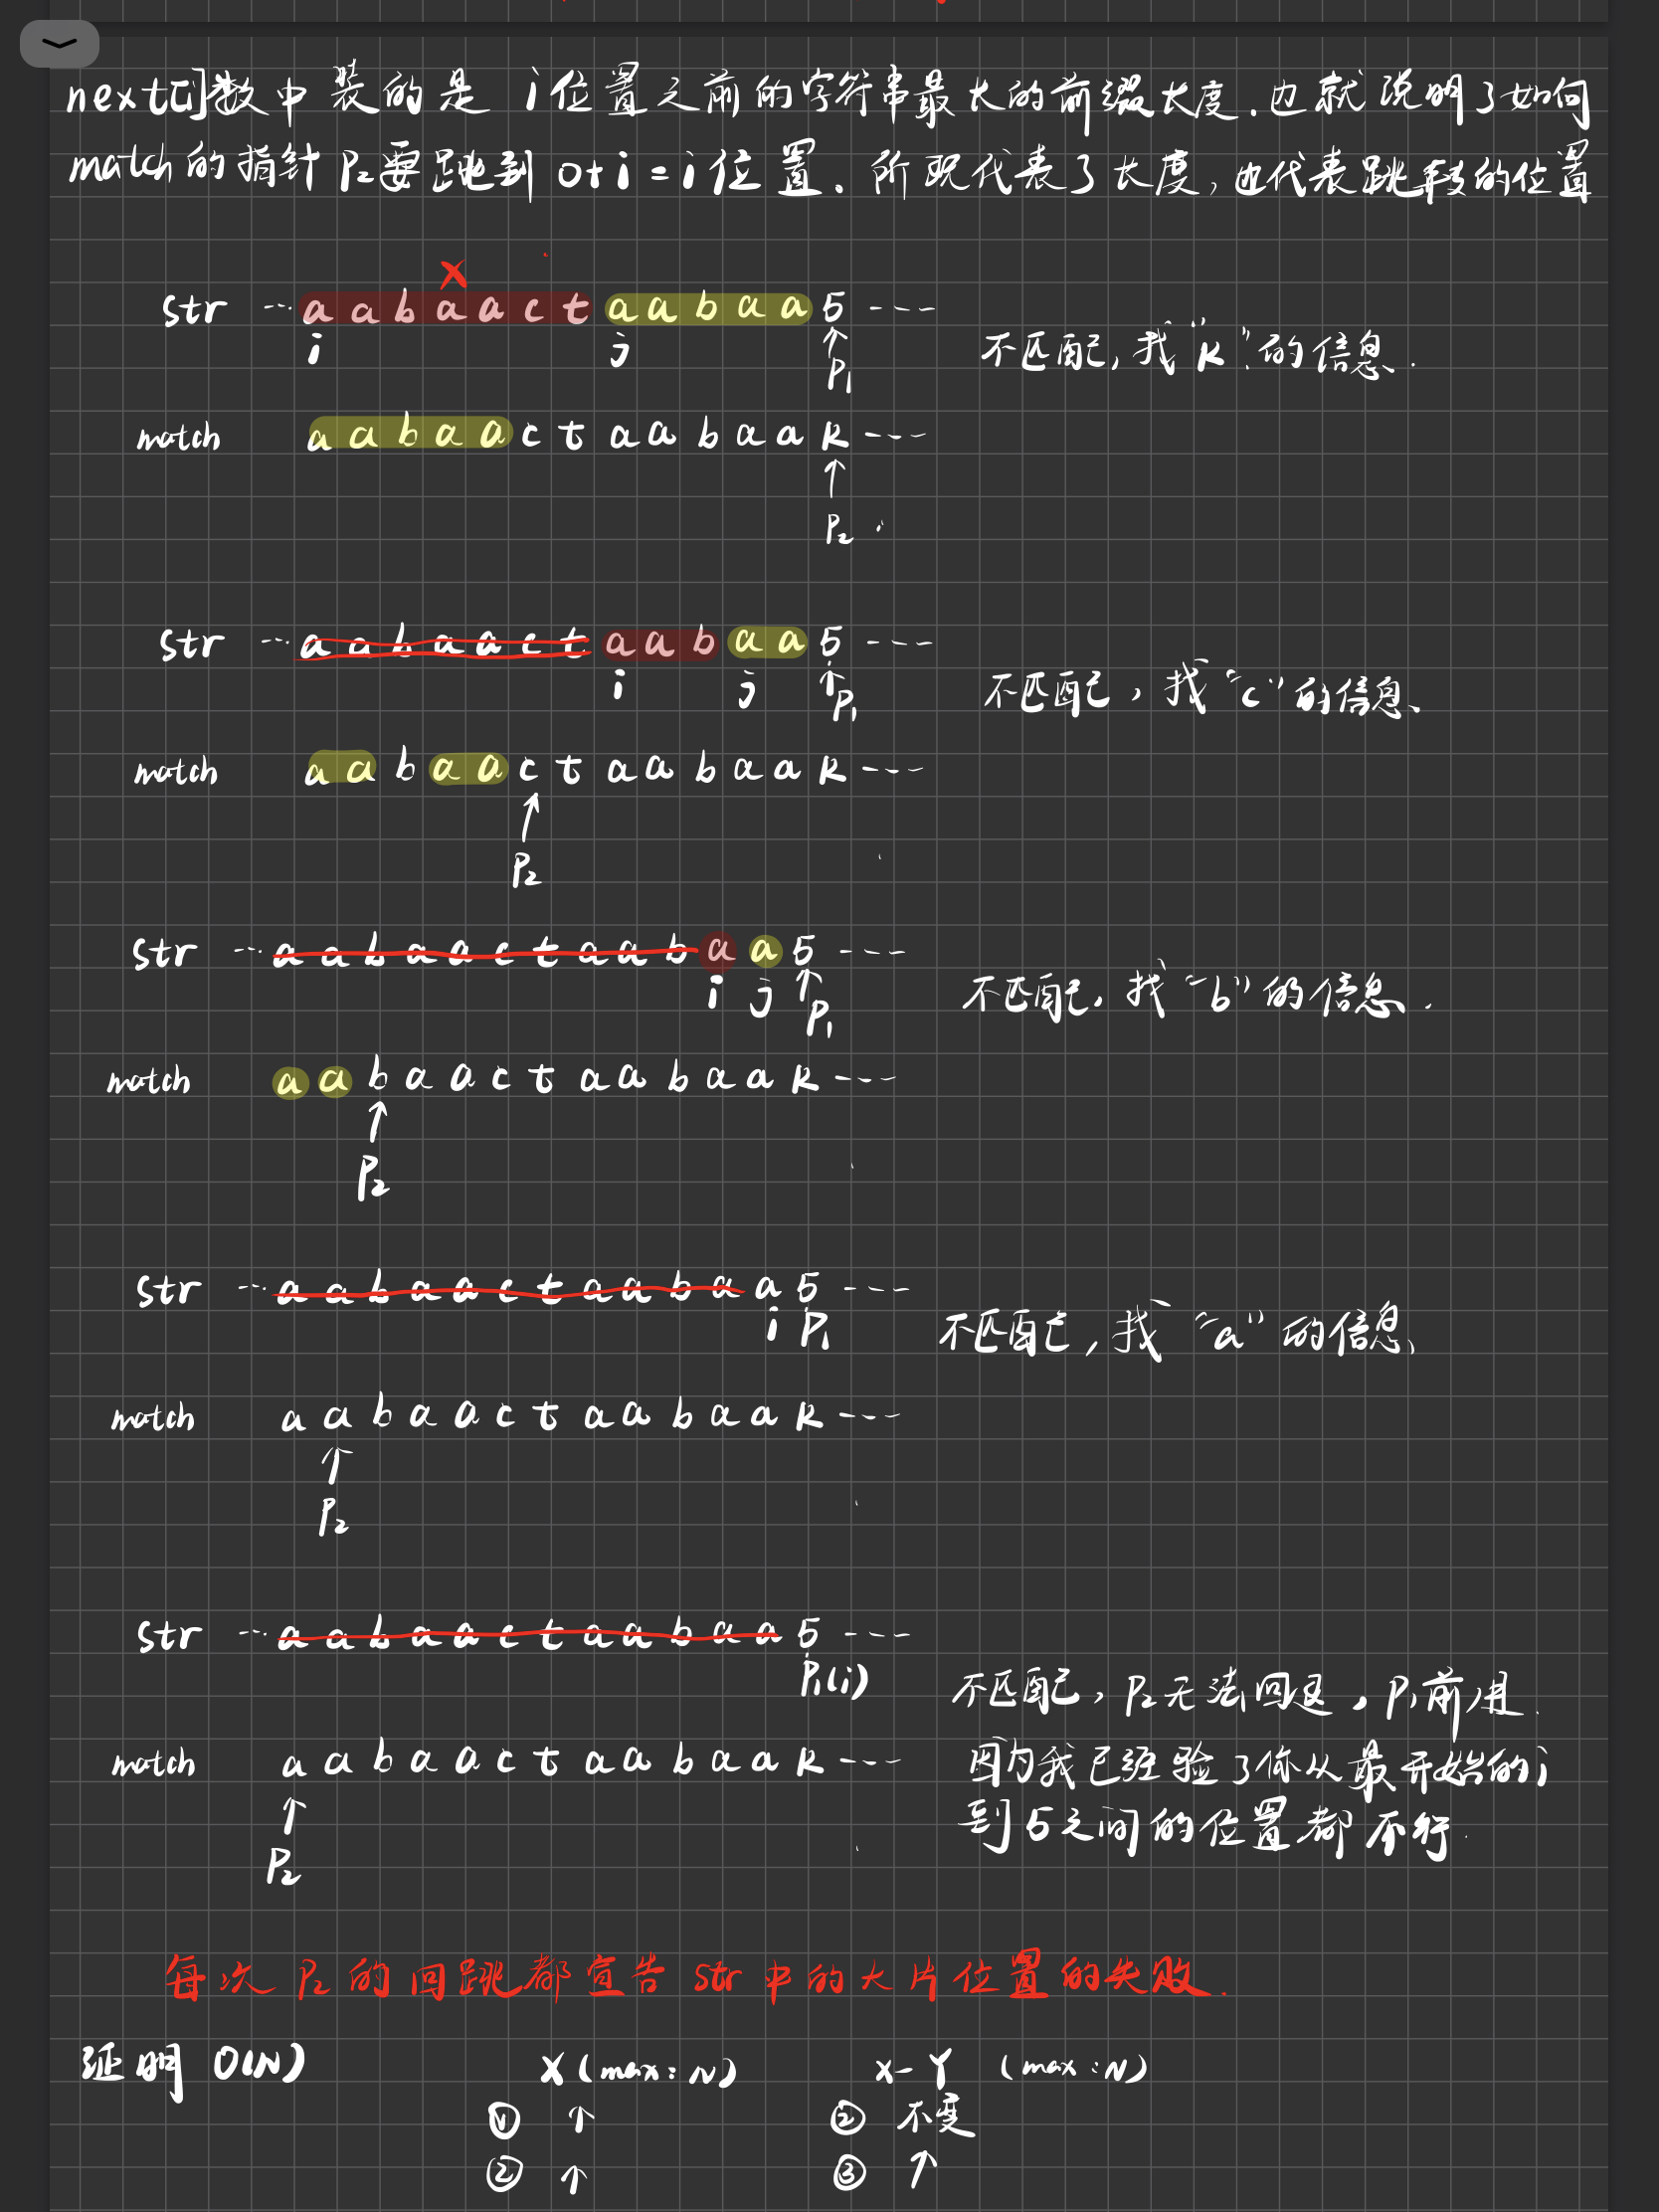 next[i]数中装的是 i位置之前的字符串最长的前缀长度.也就说明了如何
match的指针P₂要跳到 0+i=i位置. 所既代表了长度,也代表跳转的位置
X
str ···aabaactaabaa5----
i j P₁
不匹配,找"k"的信息.
match aabaactaabaak---
P₂
str ···aabaactaabaa5----
i j P₁
不匹配,找"c"的信息、
match aabaactaabaak---
P₂
str ···aabaactaabaa5----
i j P₁
不匹配,找"b"的信息.
match aabaactaabaak---
P₂
str ···aabaactaabaa5----
i P₁
不匹配,找"a"的信息、
match aabaactaabaak---
P₂
str ···aabaactaabaa5----
P₁(i)
不匹配,P₂无法回退,P₁前进.
match aabaactaabaak---
因为我已经验了你从最开始的i
到5之间的位置都不行.
P₂
每次P₂的回跳都宣告str中的大片位置的失败.
证明 O(N) X(max:N) X-Y (max:N)
① ↑ ② 不变
② ↑ ③ ↑